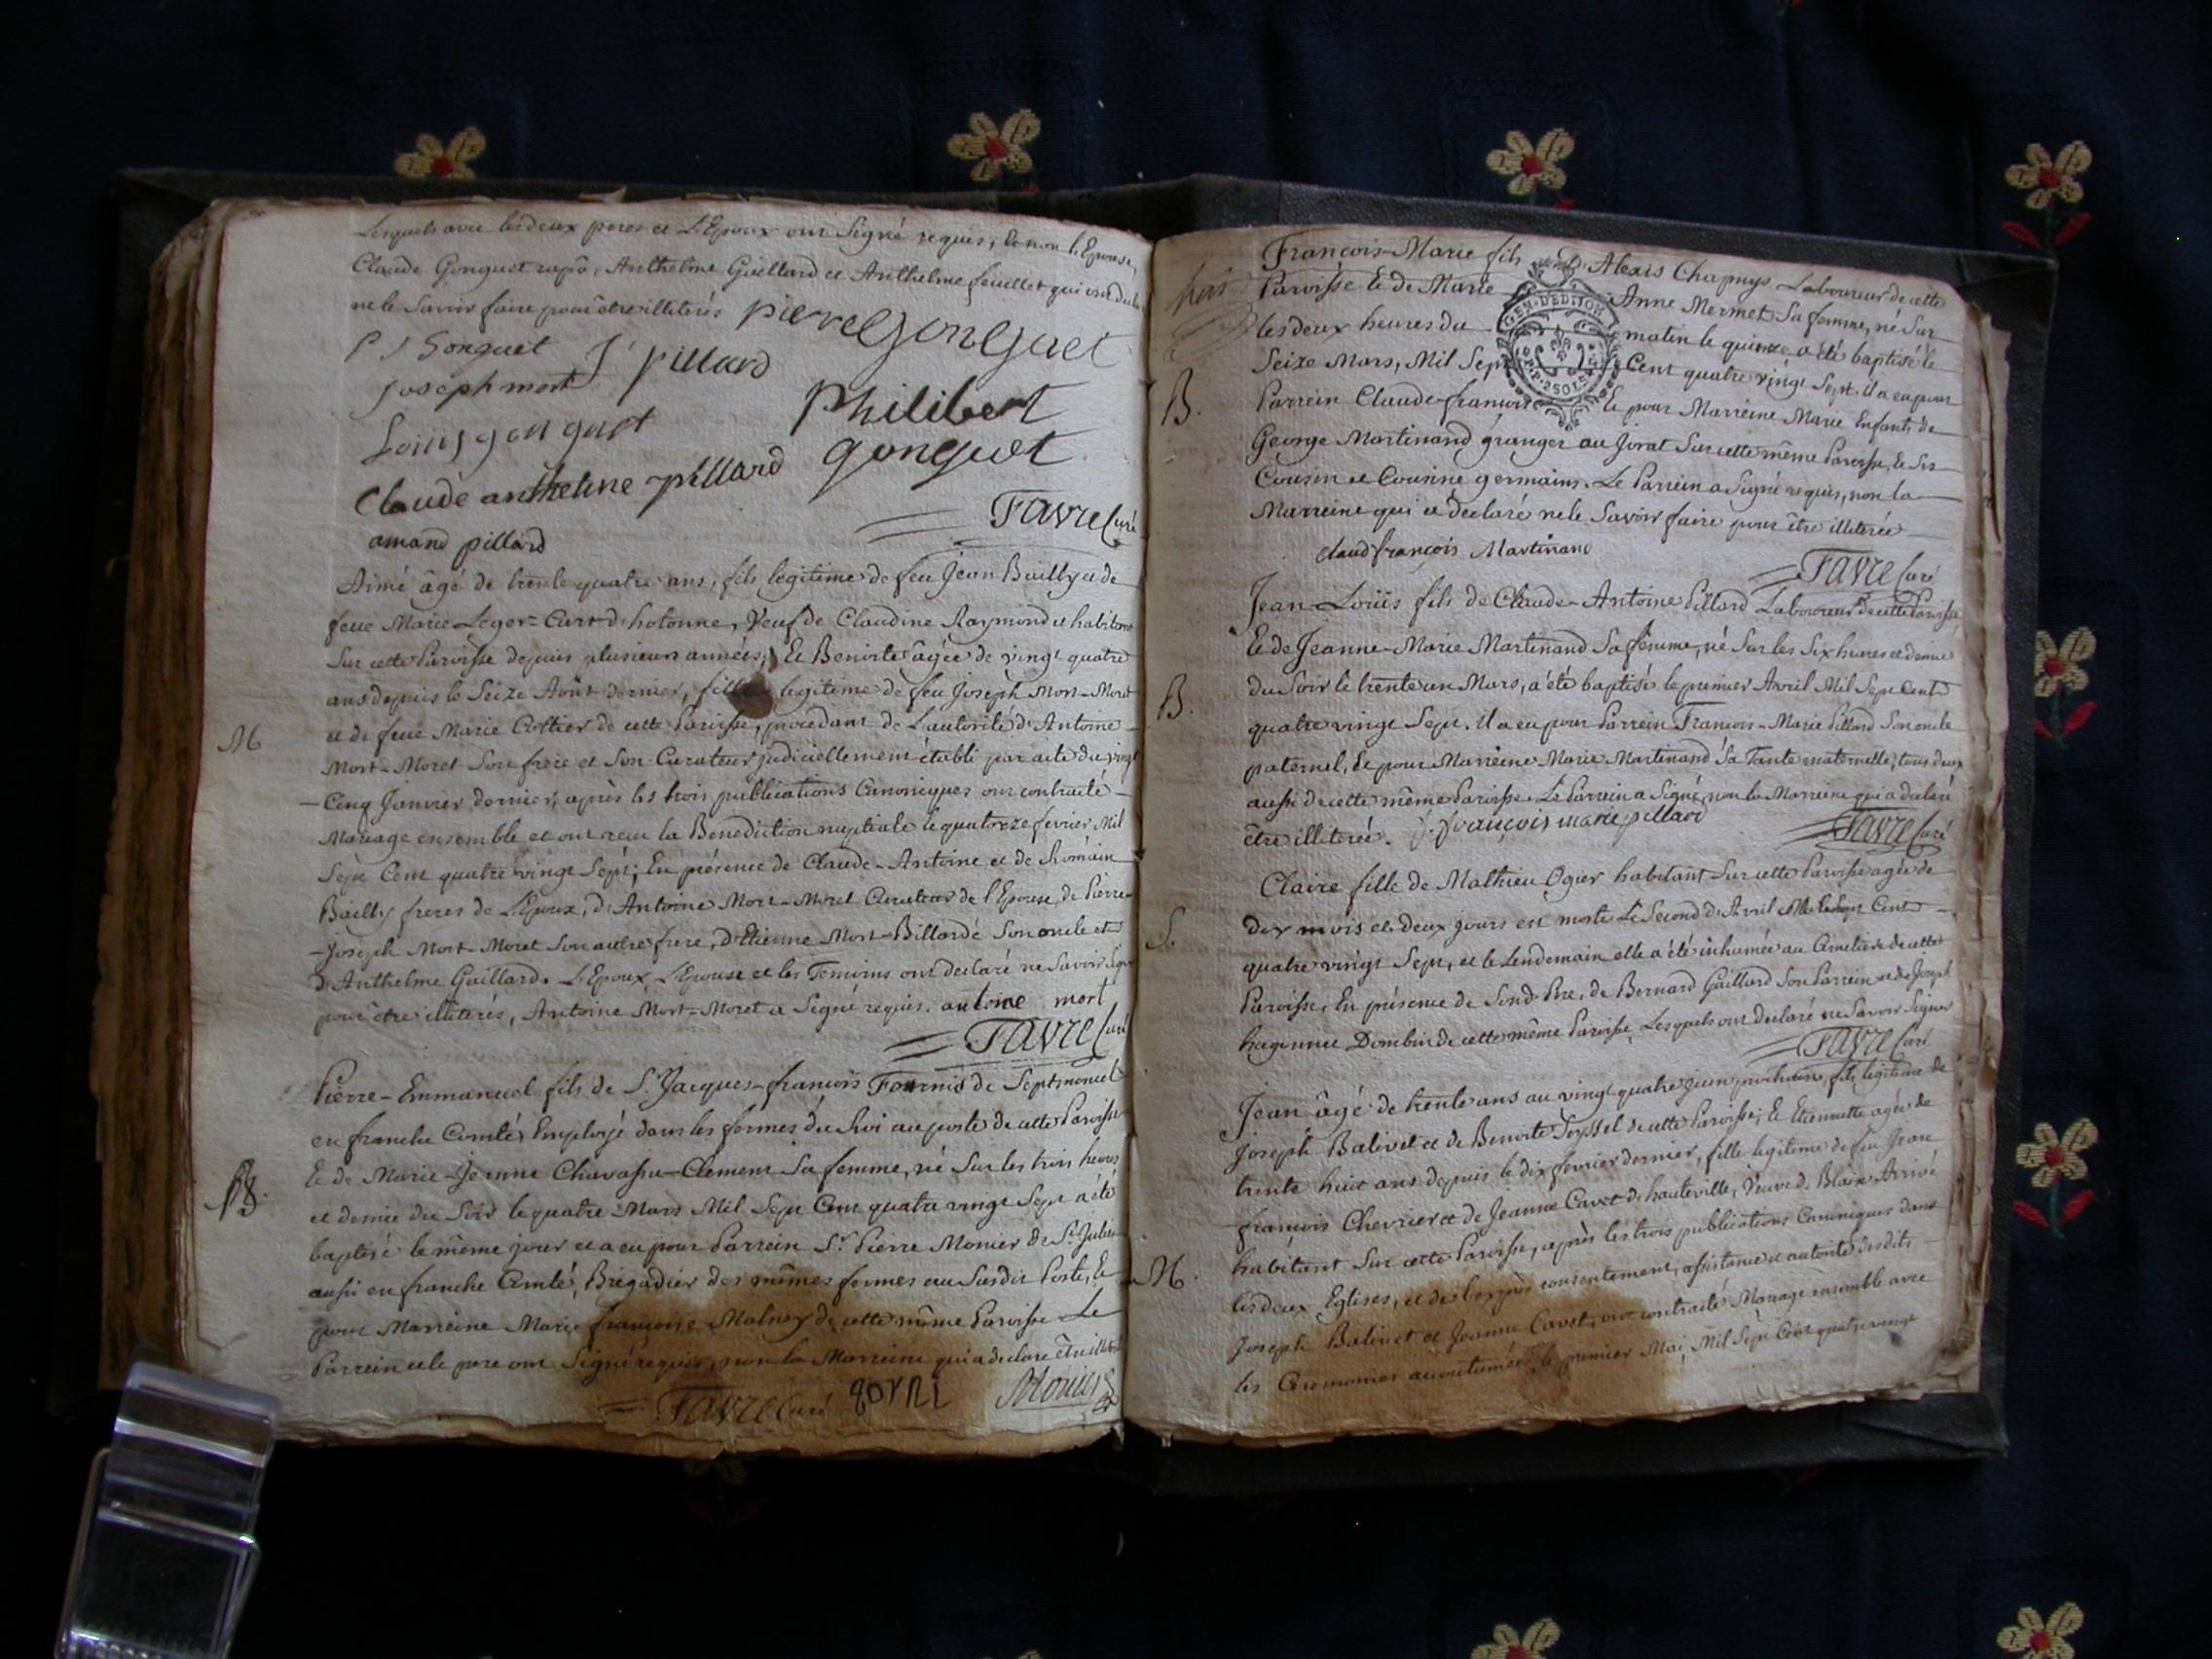 Lesquels avec les deux peres et L'Epoux ont Signé requis, et non l'Epouse,
Claude Gonguet rapô, Anthelme Gaillard et Anthelme feuillet qui ont declaré
ne le Savoir faire pour être illiterés
pierre Gonguet
P J Gonguet
J pillard
joseph mort
Philibert
gonguet
Loüis gonguet
Claude anthelme pillard
Favre Curé
amand pillard
Aimé âgé de trente quatre ans, fils légitime de feu Jean Bailly et de
feue Marie Leger-Curt d'hotonne, Veuf de Claudine Raymond et habitant
Sur cette Paroisse depuis plusieurs années; Et Benoite âgée de vingt quatre
ans depuis le Seize Août dernier, fille légitime de feu Joseph Mort-Moret
et de feue Marie Cottier de cette Paroisse, procedant de L'autorité d'Antoine
M
Mort-Moret Son frere et Son Curateur judiciellement établi par acte du vingt
-Cinq Janvier dernier, après les trois publications Canoniques ont contracté
Mariage ensemble et ont reçu la Benediction nuptiale le quatorze fevrier Mil
Sept Cent quatre vingt Sept; En présence de Claude-Antoine et de Romain
Bailly freres de L'Epoux, d'Antoine Mort-Moret Curateur de l'Epouse, de Pierre
-Joseph Mort-Moret Son autre frere, d'Etienne Mort-Billard Son oncle et
d'Anthelme Gaillard. L'Epoux, L'Epouse et les Temoins ont declaré ne Savoir Signer
pour être illiterés, Antoine Mort-Moret a Signé requis. antoine mort
Favre Curé
Pierre-Emmanuel fils de Sr. Jacques-françois Fournis de Septmoncel
en franche Comté, Employé dans les fermes du Roi au poste de cette Paroisse
Et de Marie-Jeanne Chavassu-Clement Sa femme, né Sur les trois heures
B.
et demie du Soir le quatre Mars Mil Sept Cent quatre vingt Sept a été
baptisé le même jour et a eu pour Parrein Sr. Pierre Monier de St. Julien
aussi en franche Comté, Brigadier des mêmes fermes au Susdit Poste, Et
pour Marreine Marie françoise de cette même Paroisse Le
Parrein et le pere ont Signé requis, non la Marreine qui a declaré être illiterée
Favre Curé
Monier
François-Marie fils d'Alexis Chapuys Laboureur de cette
Paroisse Et de Marie Anne Mermet Sa femme, né Sur
les deux heures du matin le quinze a été baptisé le
Seize Mars, Mil Sept Cent quatre vingt Sept. il a eu pour
B.
Parrein Claude-françois Et pour Marreine Marie Enfants de
George Martinand granger au Jorat Sur cette même Paroisse, Et Ses
Cousin et Cousine germains. Le Parrein a Signé requis, non la
Marreine qui a declaré ne le Savoir faire pour être illiterée
claud françois Martinand
Favre Curé
Jean-Loüis fils de Claude-Antoine Pillard Laboureur de cette Paroisse
Et de Jeanne-Marie Martinand Sa femme, né Sur les Six heures et demie
B.
du Soir le trente un Mars, a été baptisé le premier Avril Mil Sept Cent
quatre vingt Sept. Il a eu pour Parrein François-Marie Pillard Son oncle
paternel, Et pour Marreine Marie Martinand Sa Tante maternelle, tous deux
aussi de cette même Paroisse. Le Parrein a Signé, non la Marreine qui a declaré
être illiterée. françois marie pillard
Favre Curé
Claire fille de Mathieu Ogier habitant Sur cette Paroisse agée de
S.
dix mois et deux jours est morte Le Second d'Avril Mil Sept Cent
quatre vingt Sept, et le Lendemain elle a été inhumée au Cimetiere de cette
Paroisse, En présence de Sond. Pere, de Bernard Gaillard Son Parrein et de Joseph
hugonnet Dombin de cette même Paroisse, Lesquels ont declaré ne Savoir Signer
Favre Curé
Jean âgé de trente ans au vingt quatre juin prochain, fils légitime de
Joseph Balivet et de Benoite Teyssel de cette Paroisse; Et Etiennette agée de
trente huit ans depuis le dix fevrier dernier, fille légitime de feu Jean
françois Chevrier et de Jeanne Cavet de hauteville, Veuve de Blaise Arrivé
M.
habitant Sur cette Paroisse, après les trois publications Canoniques dans
les deux Eglises, et de l'exprès consentement, assistance et autorité desdits
Joseph Balivet et Jeanne Cavet, ont contracté Mariage ensemble avec
les Ceremonies accoutumées le premier Mai, Mil Sept Cent quatre vingt